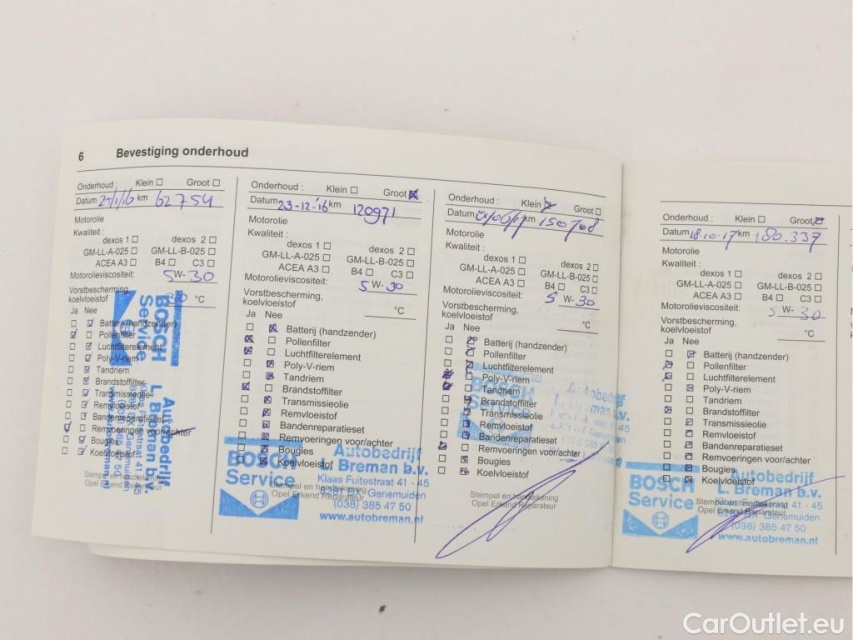 6 Bevestiging onderhoud
Onderhoud : Klein Groot
Datum km 62754
Motorolie
Kwaliteit :
dexos 1 dexos 2
GM-LL-A-025 GM-LL-B-025
ACEA A3 B4 C3
Motorolieviscositeit: 5 W-30
Vorstbescherming. koelvloeistof °C
Ja Nee
Batterij (handzender)
Pollenfilter
Luchtfilterelement
Poly-V-riem
Tandriem
Brandstoffilter
Transmissieolie
Remvloeistof
Bandenreparatieset
Remvoeringen voor/achter
Bougies
Koelvloeistof
Stempel en handtekening
Opel Erkend Reparateur
BOSCH
Service
Autobedrijf
L. Breman b.v.
Onderhoud : Klein Groot
Datum 23-12-'16 km 120971
Motorolie
Kwaliteit :
dexos 1 dexos 2
GM-LL-A-025 GM-LL-B-025
ACEA A3 B4 C3
Motorolieviscositeit: 5 W-30
Vorstbescherming.
koelvloeistof °C
Ja Nee
Batterij (handzender)
Pollenfilter
Luchtfilterelement
Poly-V-riem
Tandriem
Brandstoffilter
Transmissieolie
Remvloeistof
Bandenreparatieset
Remvoeringen voor/achter
Bougies
Koelvloeistof
Stempel en handtekening
Opel Erkend Reparateur
BOSCH
Service
Autobedrijf
L. Breman b.v.
Klaas Fuitestraat 41 - 45
8281 BX Genemuiden
(038) 385 47 50
www.autobreman.nl
Onderhoud : Klein Groot
Datum km 150768
Motorolie
Kwaliteit :
dexos 1 dexos 2
GM-LL-A-025 GM-LL-B-025
ACEA A3 B4 C3
Motorolieviscositeit: 5 W-30
Vorstbescherming.
koelvloeistof °C
Ja Nee
Batterij (handzender)
Pollenfilter
Luchtfilterelement
Poly-V-riem
Tandriem
Brandstoffilter
Transmissieolie
Remvloeistof
Bandenreparatieset
Remvoeringen voor/achter
Bougies
Koelvloeistof
Stempel en handtekening
Opel Erkend Reparateur
BOSCH
Service
Autobedrijf
L. Breman b.v.
Onderhoud : Klein Groot
Datum 18-10-17 km 180.337
Motorolie
Kwaliteit :
dexos 1 dexos 2
GM-LL-A-025 GM-LL-B-025
ACEA A3 B4 C3
Motorolieviscositeit: 5 W-30
Vorstbescherming.
koelvloeistof °C
Ja Nee
Batterij (handzender)
Pollenfilter
Luchtfilterelement
Poly-V-riem
Tandriem
Brandstoffilter
Transmissieolie
Remvloeistof
Bandenreparatieset
Remvoeringen voor/achter
Bougies
Koelvloeistof
Stempel en handtekening
Opel Erkend Reparateur
BOSCH
Service
Autobedrijf
L. Breman b.v.
41 - 45
Genemuiden
(038) 385 47 50
www.autobreman.nl
CarOutlet.eu